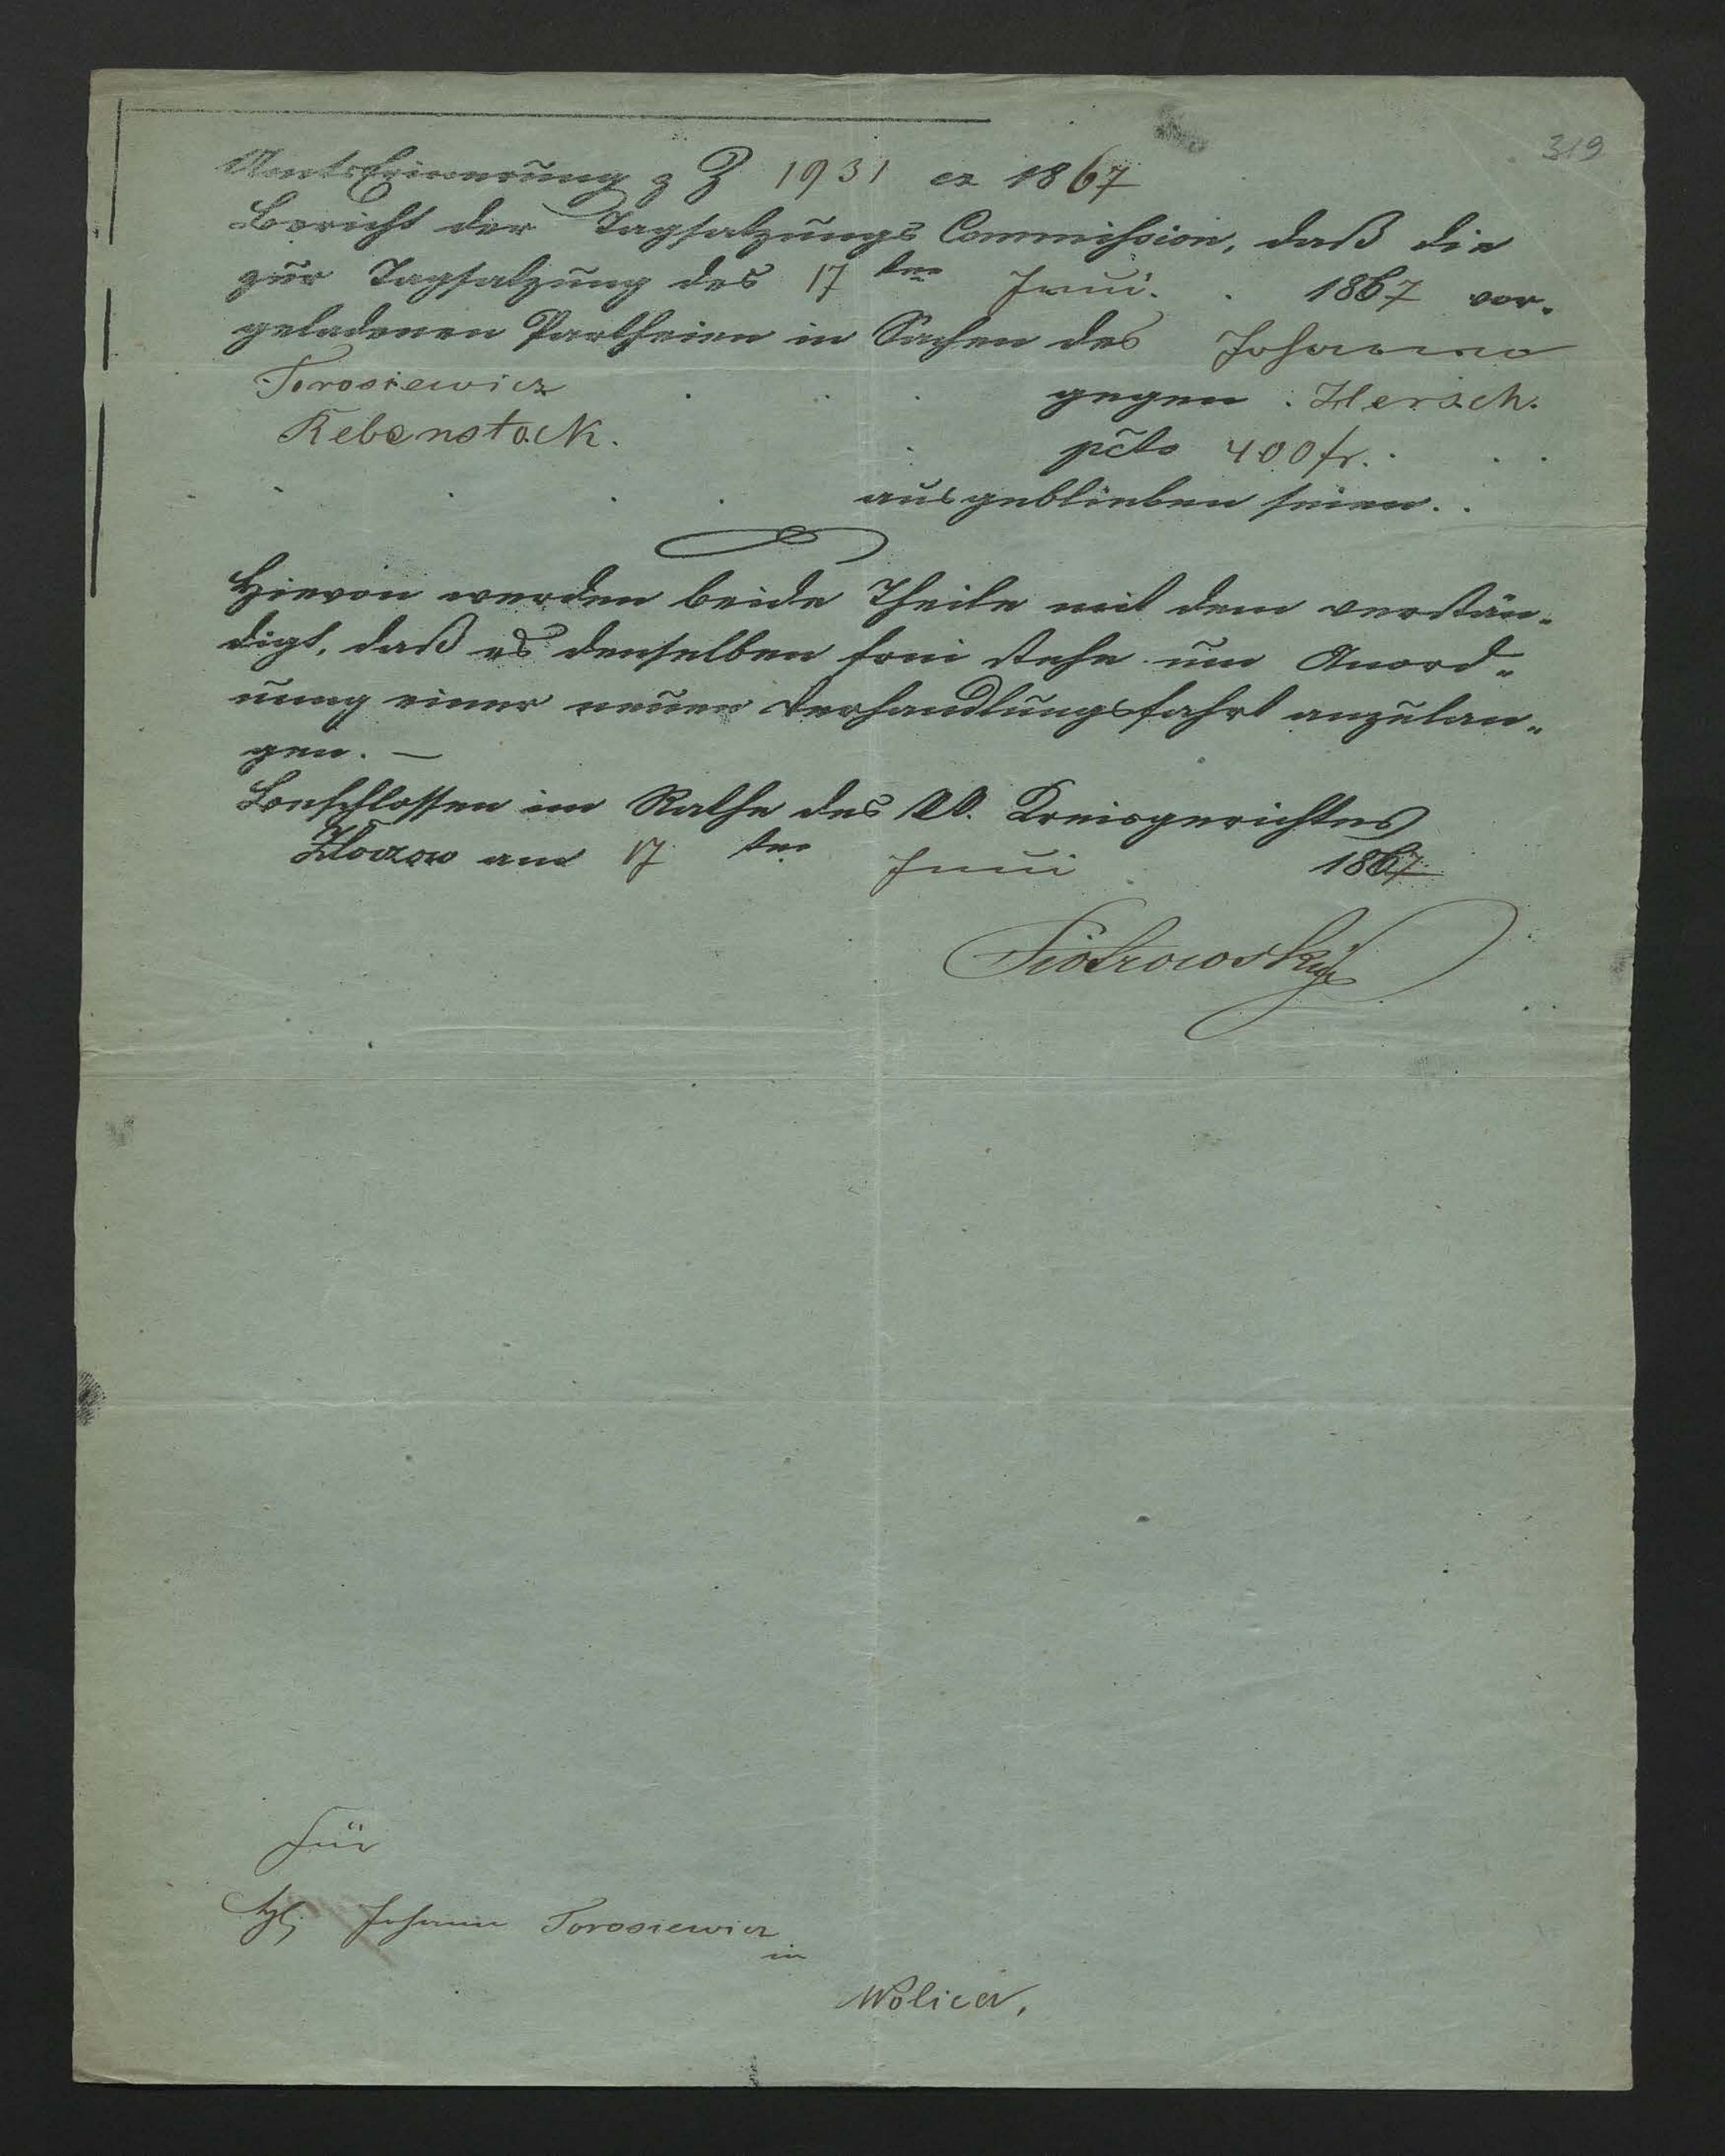 319
AmtsErinnerung z Z 1931 ex 1867
Bericht der Tagsatzungs Commission, daß die
zur Tagsatzung des 17 ten Juni 1867 vor-
geladenen Partheien in Sachen des Johann
Torosiewicz gegen Hersch
Rebenstock. pcto 400 fr.
ausgeblieben seien.
Hievon werden beide Theile mit dem verstän-
digt, daß es denselben frei stehe um Anord-
nung einer neuen Verhandlungsfahrt anzulan-
gen. —
Beschlossen im Rathe des kk. Kreisgerichtes
Złoczow am 17 ten Juni 1867
Piotrowski
Für
Johann Torosiewicz
in
Wolica,